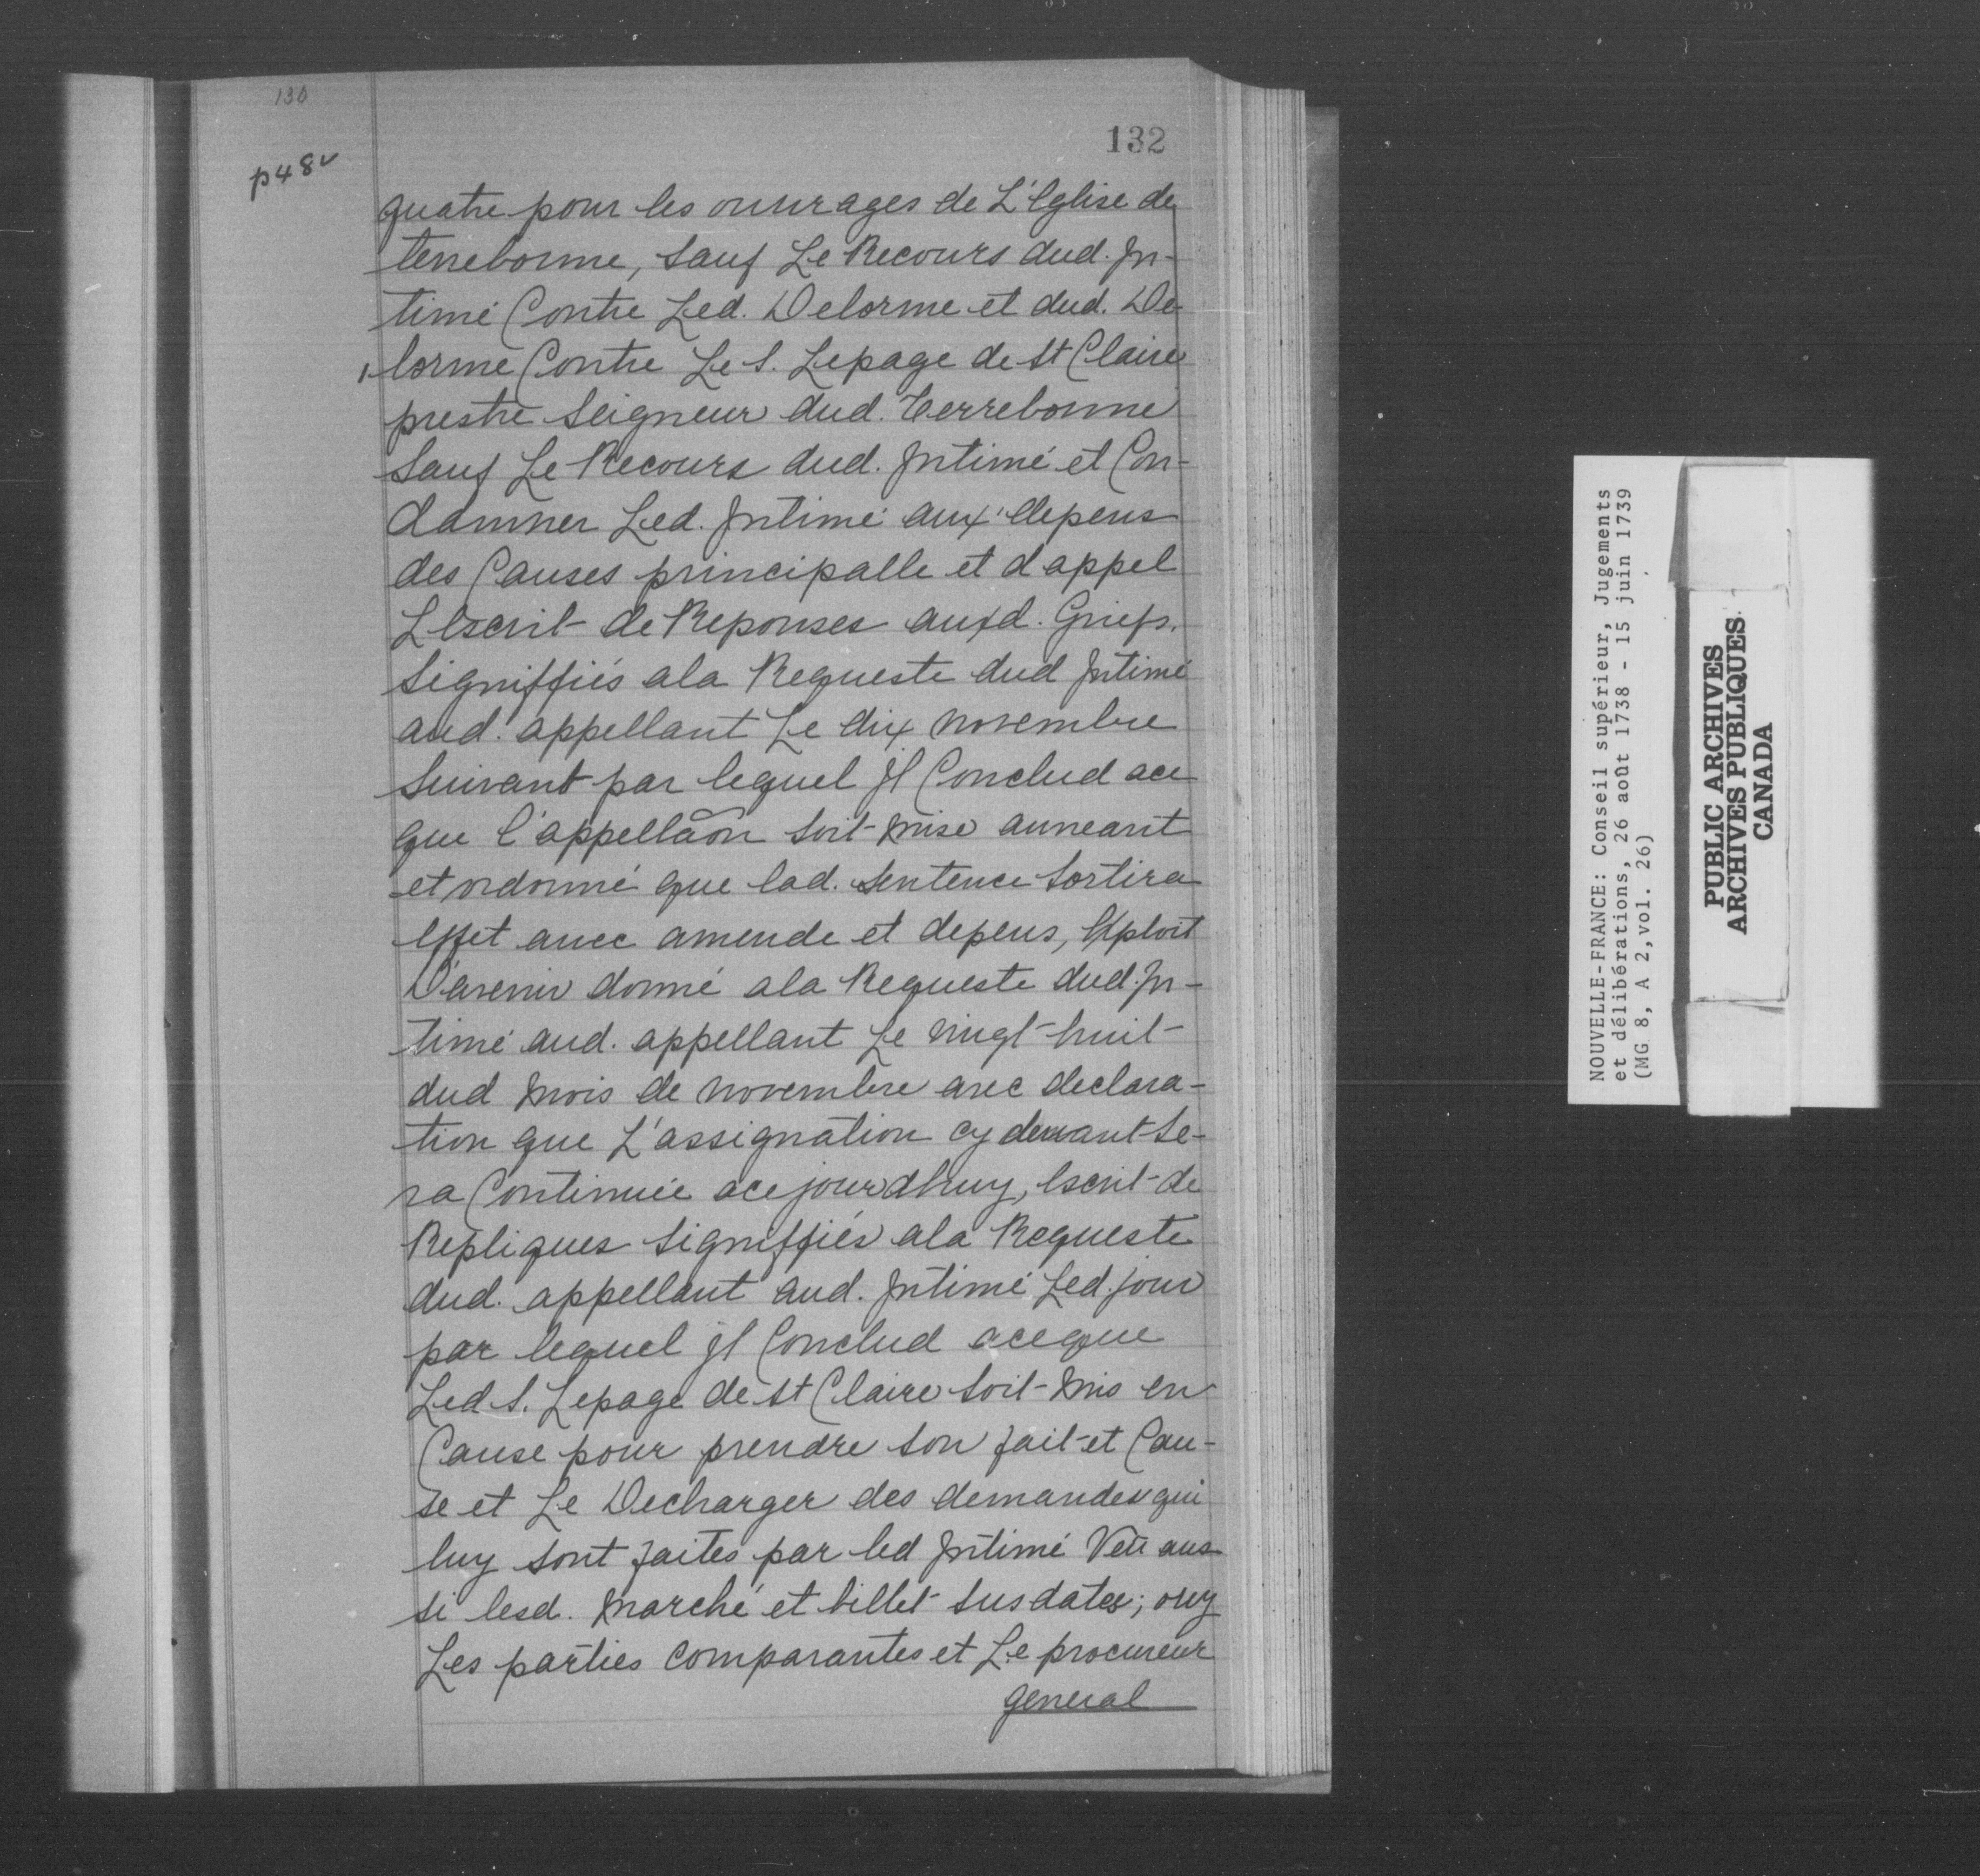 130
132
p 48 v
quatre pour les ouurages de L'Eglise de
terrebonne, sauf Le Recours dud. In-
timé Contre Led. Delorme et dud. De
lorme Contre Le S. Lepage de St Claire
prestre Seigneur dud. Terrebonne
Sauf Le Recours dud. Intimé et Con-
damner Led. Intimé aux depens
des Causes principalle et d'appel
L'Escrit de Reponses auxd. Griefs.
Signiffiés ala Requeste dud Intimé
aud. appellant Le dix novembre
Suivant par lequel jl Conclud ace
que l'appellãon soit mise auneant
et ordonné que lad. Sentence Sortira
effet auec amende et depens, Exploit
D'avenir donné ala Requeste dud. In-
timé aud. appellant Le vingt-huit
dud mois de novembre avec declara-
tion que L'assignation cy devant se-
ra Continuée acejourdhuy, Escrit de
Repliques Signiffiés ala Requeste
dud. appellant aud. Intimé Led. jour
par lequel jl Conclud aceque
Led S. Lepage de St Claire soit mis en
Cause pour prendre son fait et Cau-
se et Le Decharger des demandes qui
luy sont faites par led Intimé Veü aus
si lesd. marché et billet susdates; ouy
Les parties comparantes et Le procureur
general
NOUVELLE-FRANCE: Conseil supérieur, Jugements
et délibérations, 26 août 1738 - 15 juin 1739
(MG 8, A 2, vol. 26)
PUBLIC ARCHIVES
ARCHIVES PUBLIQUES
CANADA